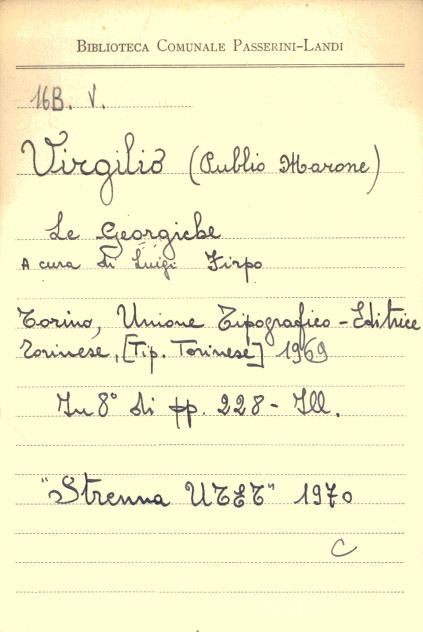 BIBLIOTECA COMUNALE PASSERINI-LANDI
16B. V.
Virgilio (Publio Marone)
Le Georgiche
A cura di Luigi Firpo
Torino, Unione Tipografico-Editrice
Torinese, [Tip. Torinese] 1969
In 8° di pp. 228 - Ill.
"Strenna UTET" 1970
C